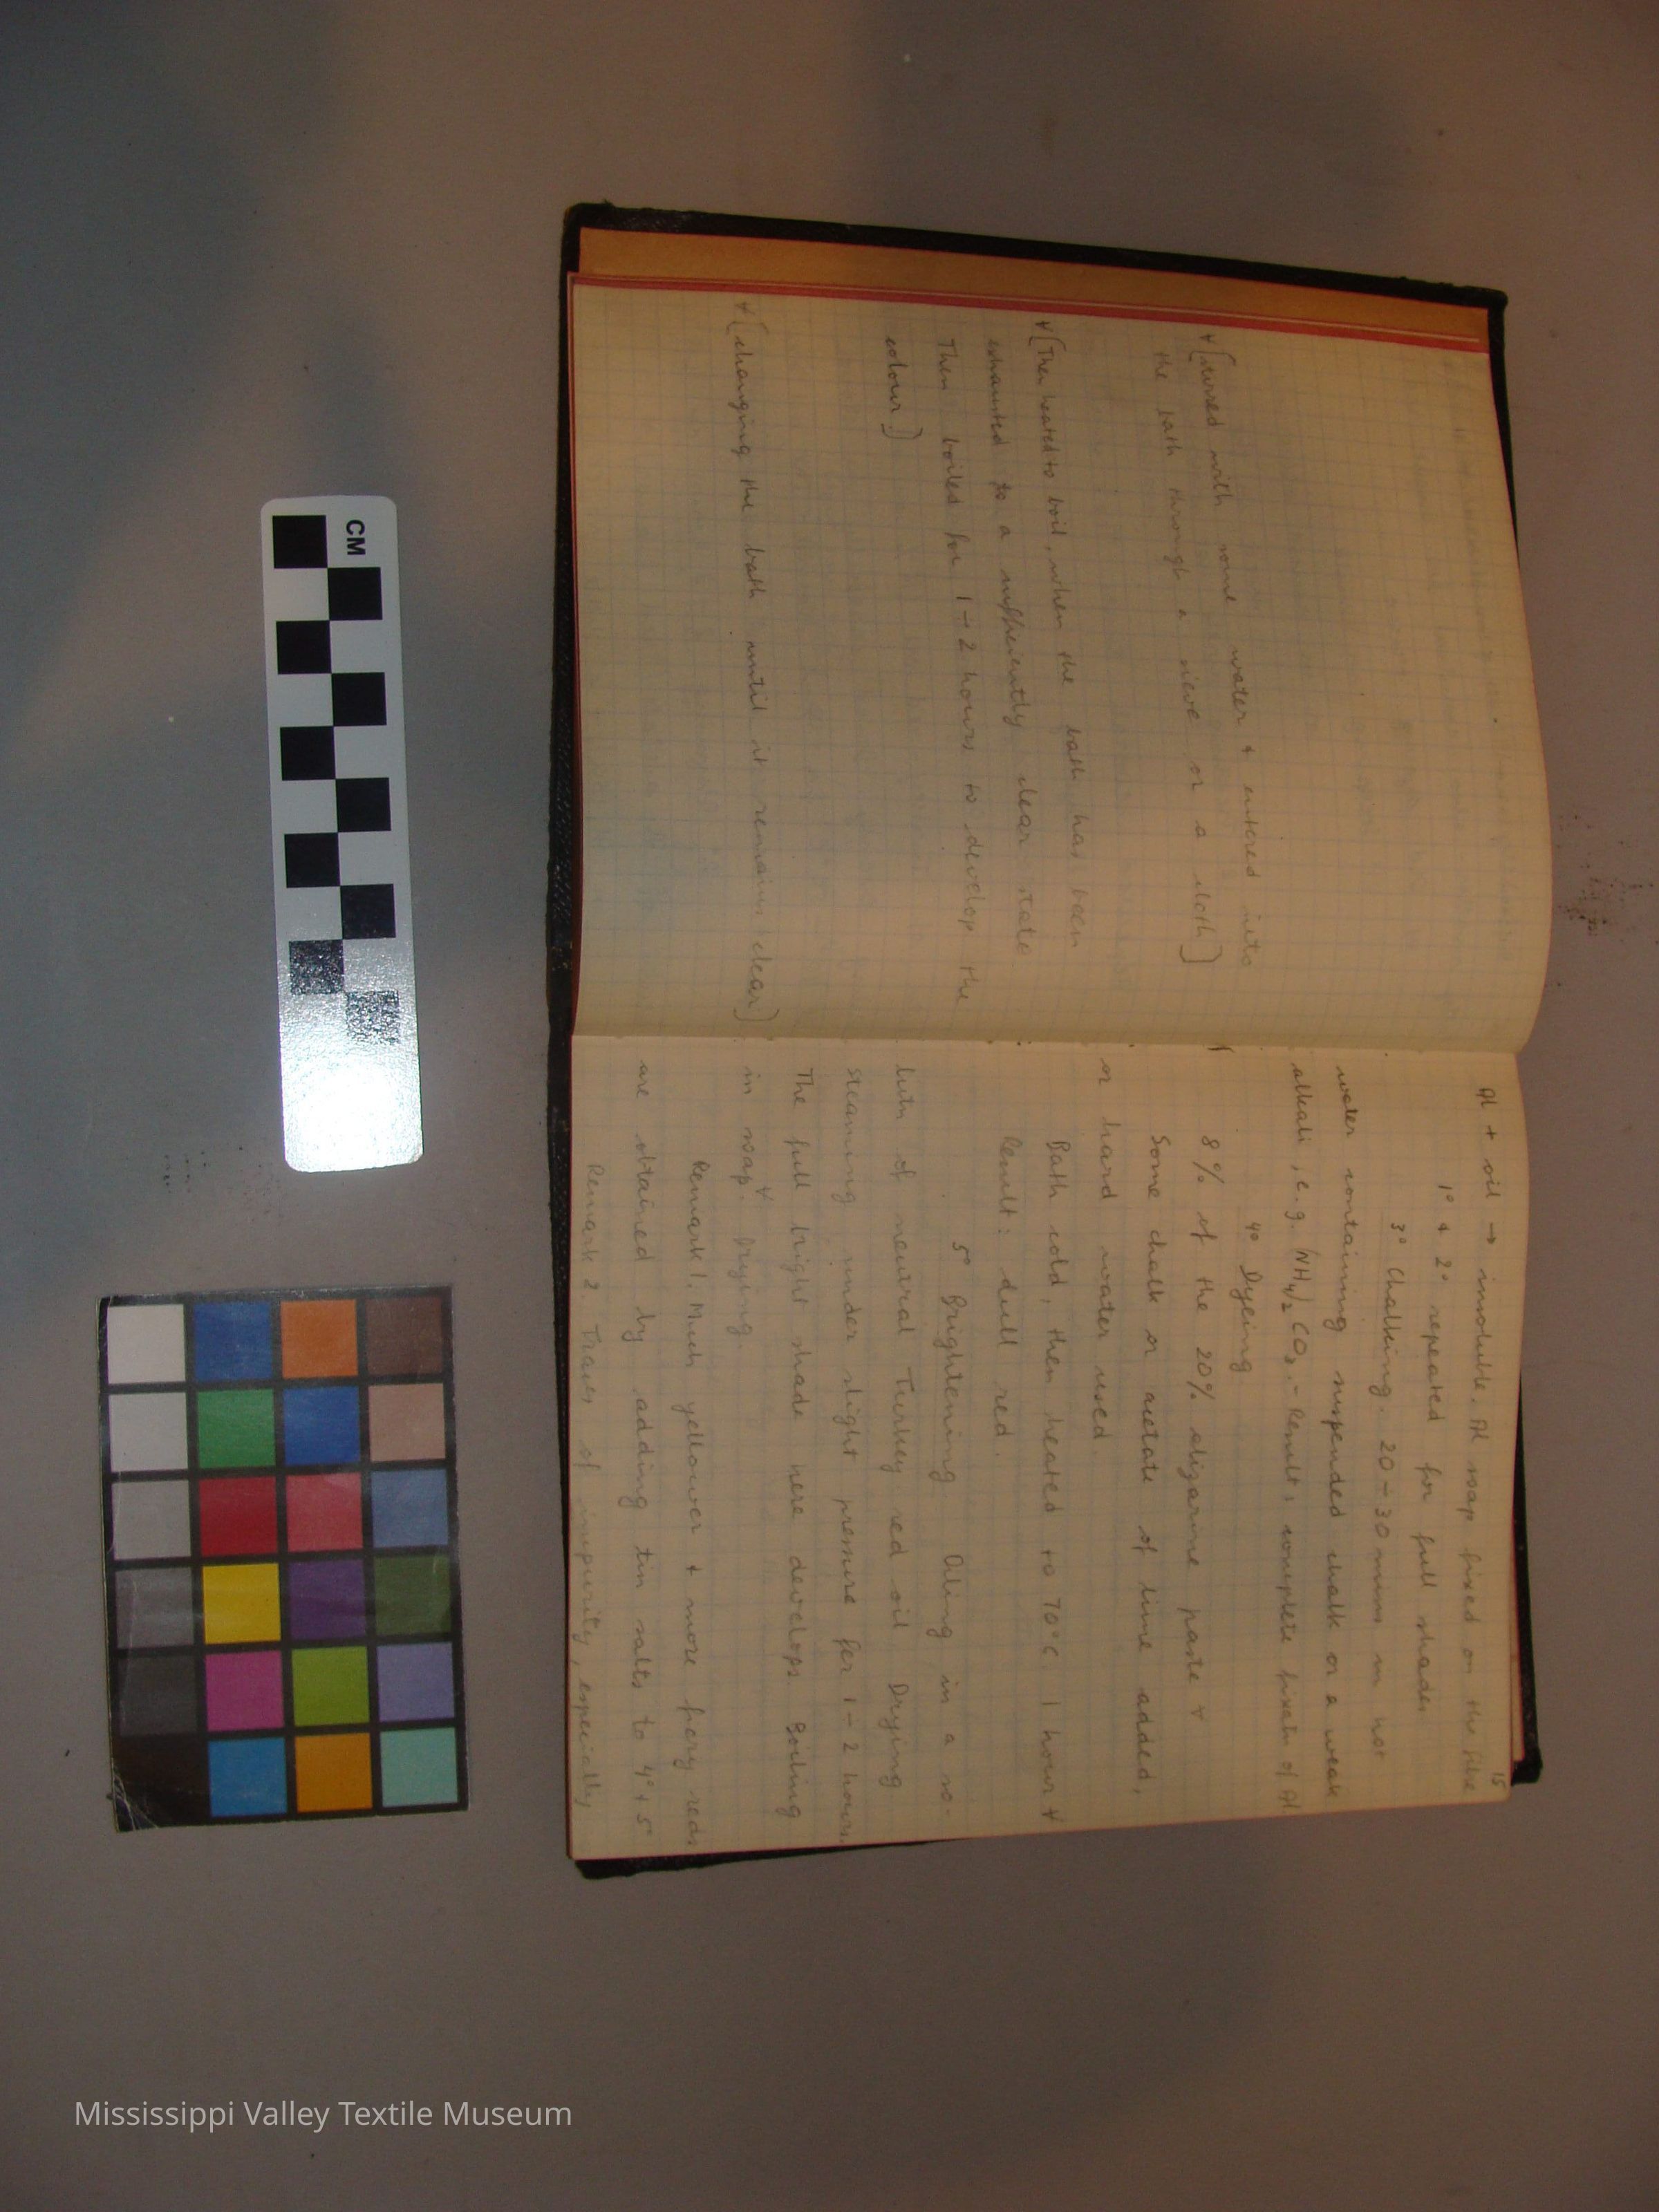 ⁺[stirred with some water + entered into
the bath through a sieve or a cloth]
⁺[Then heated to boil, when the bath has been
exhausted to a sufficiently clear state
Then boiled for 1–2 hours to develop the
colour]
⁺[changing the bath until it remains clear]
15
Al + oil → insoluble. Al soap fixed on the fibre
1° + 2° repeated for full shades
3° Chalking. 20–30 mins in hot
water containing suspended chalk or a weak
alkali, e.g. (NH4)2 CO3. – Result: complete fixatn of Al
4° Dyeing
8% of the 20% alizarine paste ⁺
Some chalk or acetate of lime added,
or hard water used.
Bath cold, then heated to 70°C 1 hour ⁺
Result: dull red.
5° Brightening. Oiling in a so-
lutn of neutral Turkey red oil Drying
Steaming under slight pressure for 1–2 hours.
The full bright shade here develops. Boiling
in soap.⁺ Drying.
Remark 1. Much yellower + more fiery reds
are obtained by adding tin salts to 4° + 5°
Remark 2. Traces of impurity, especially
CM
Mississippi Valley Textile Museum